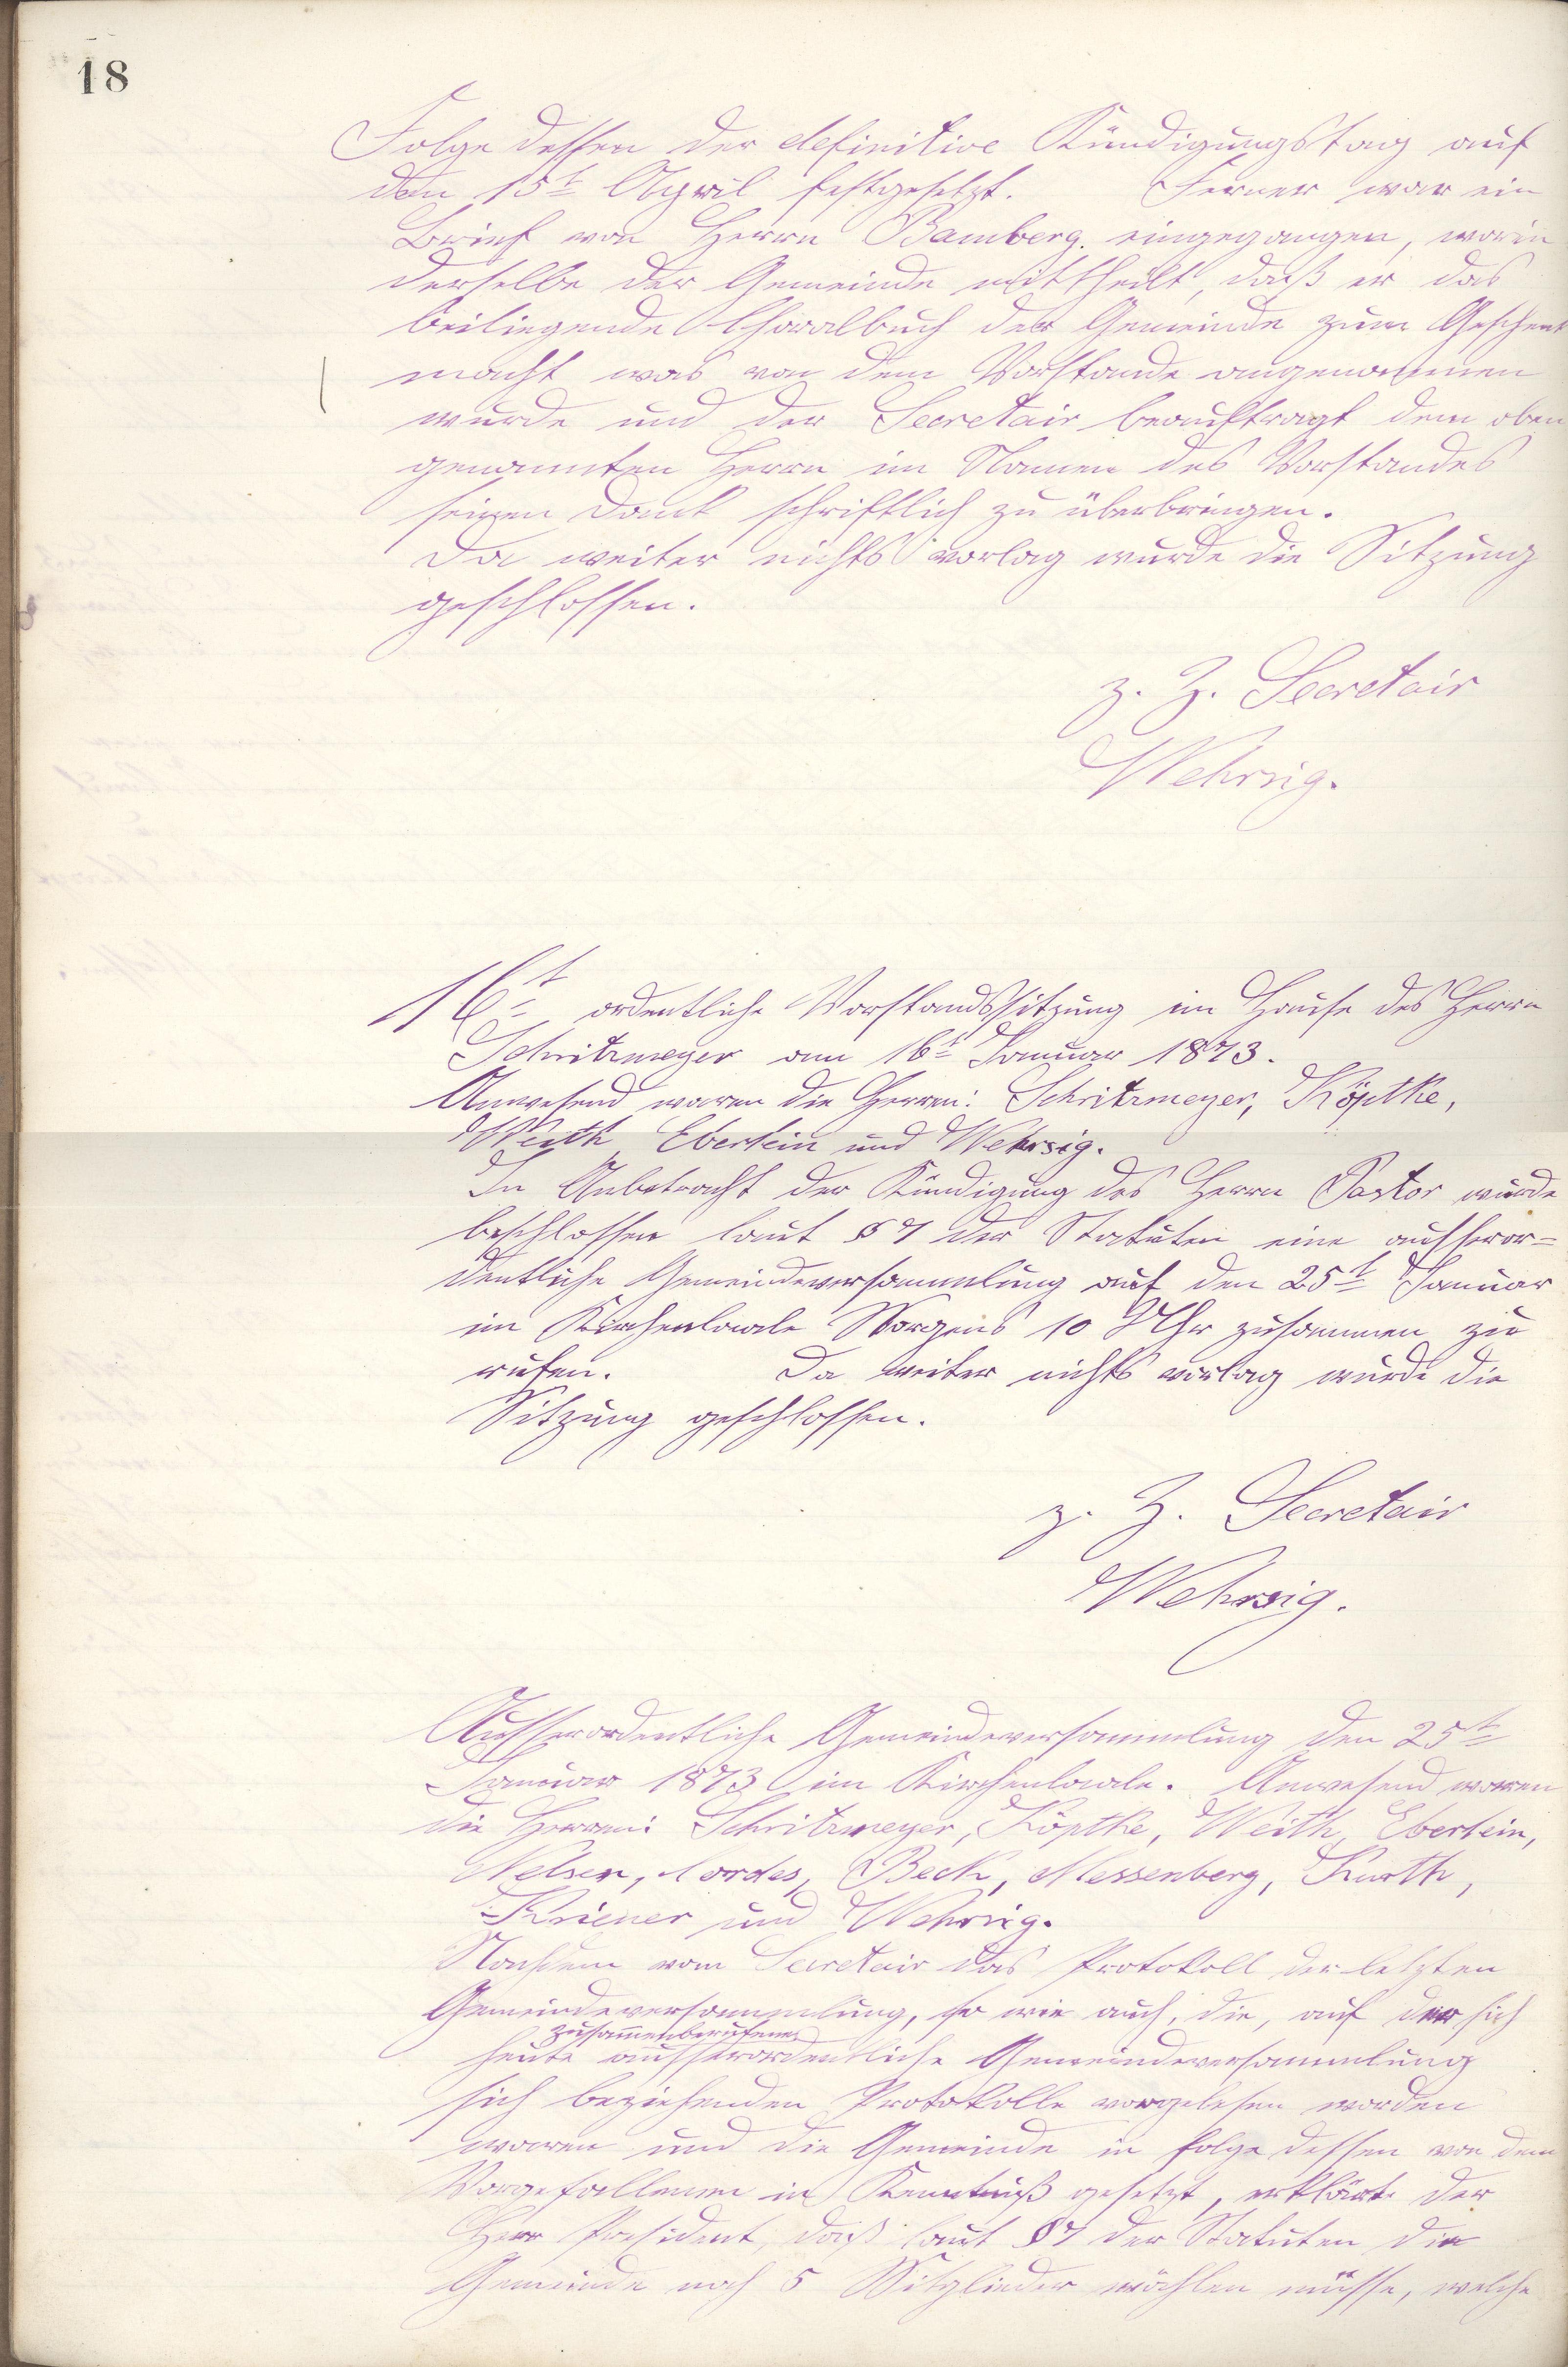 18
Folge dessen der definitive Kündigungstag auf
den 15t April festgesetzt. Ferner war ein
Brief von Herrn Bamberg. eingegangen, worin
derselbe der Gemeinde mittheilt, daß er das
beiliegende Choralbuch der Gemeinde zum Geschenk
macht was von dem Vorstande angenommen
wurde und der Secretair beauftragt dem oben
genannten Herrn im Namen des Vorstandes
seinen Dank schriftlich zu überbringen.
Da weiter nichts vorlag wurde die Sitzung
geschlossen.
z. Z. Secretair
Wehrsig.
16t ordentliche Vorstandssitzung im Hause des Herrn
Schritzmeyer am 16t Januar 1873.
Anwesend waren die Herren: Schritzmeyer, Köptke,
Weith, Eberlein und Wehrsig.
In Anbetracht der Kündigung des Herrn Pastor wurde
beschlossen laut § 7 der Statuten eine ausseror=
dentliche Gemeindeversammlung auf den 25t Januar
im Kirchenlocale Morgens 10 Uhr zusammen zu
rufen. Da weiter nichts vorlag wurde die
Sitzung geschlossen.
z. Z. Secretair
Wehrsig.
Ausserordentliche Gemeindeversammlung den 25t
Januar 1873 im Kirchenlocale. Anwesend waren
die Herren: Schritzmeyer, Köptke, Weith, Eberlein,
Nelsen, Cordes, Beck, Messenberg, Kurth,
Kriener und Wehrsig.
Nachdem vom Secretair das Protokoll der letzten
Gemeindeversammlung, so wie auch, die, auf der sich
zusammenberufene
heute ausserordentliche Gemeindeversammlung
sich beziehenden Protokolle vorgelesen worden
waren und die Gemeinde in Folge dessen von dem
Vorgefallenen in Kenntniß gesetzt, erklärte der
Herr President, daß laut § 7 der Statuten die
Gemeinde noch 5 Mitglieder wählen müsse, welche